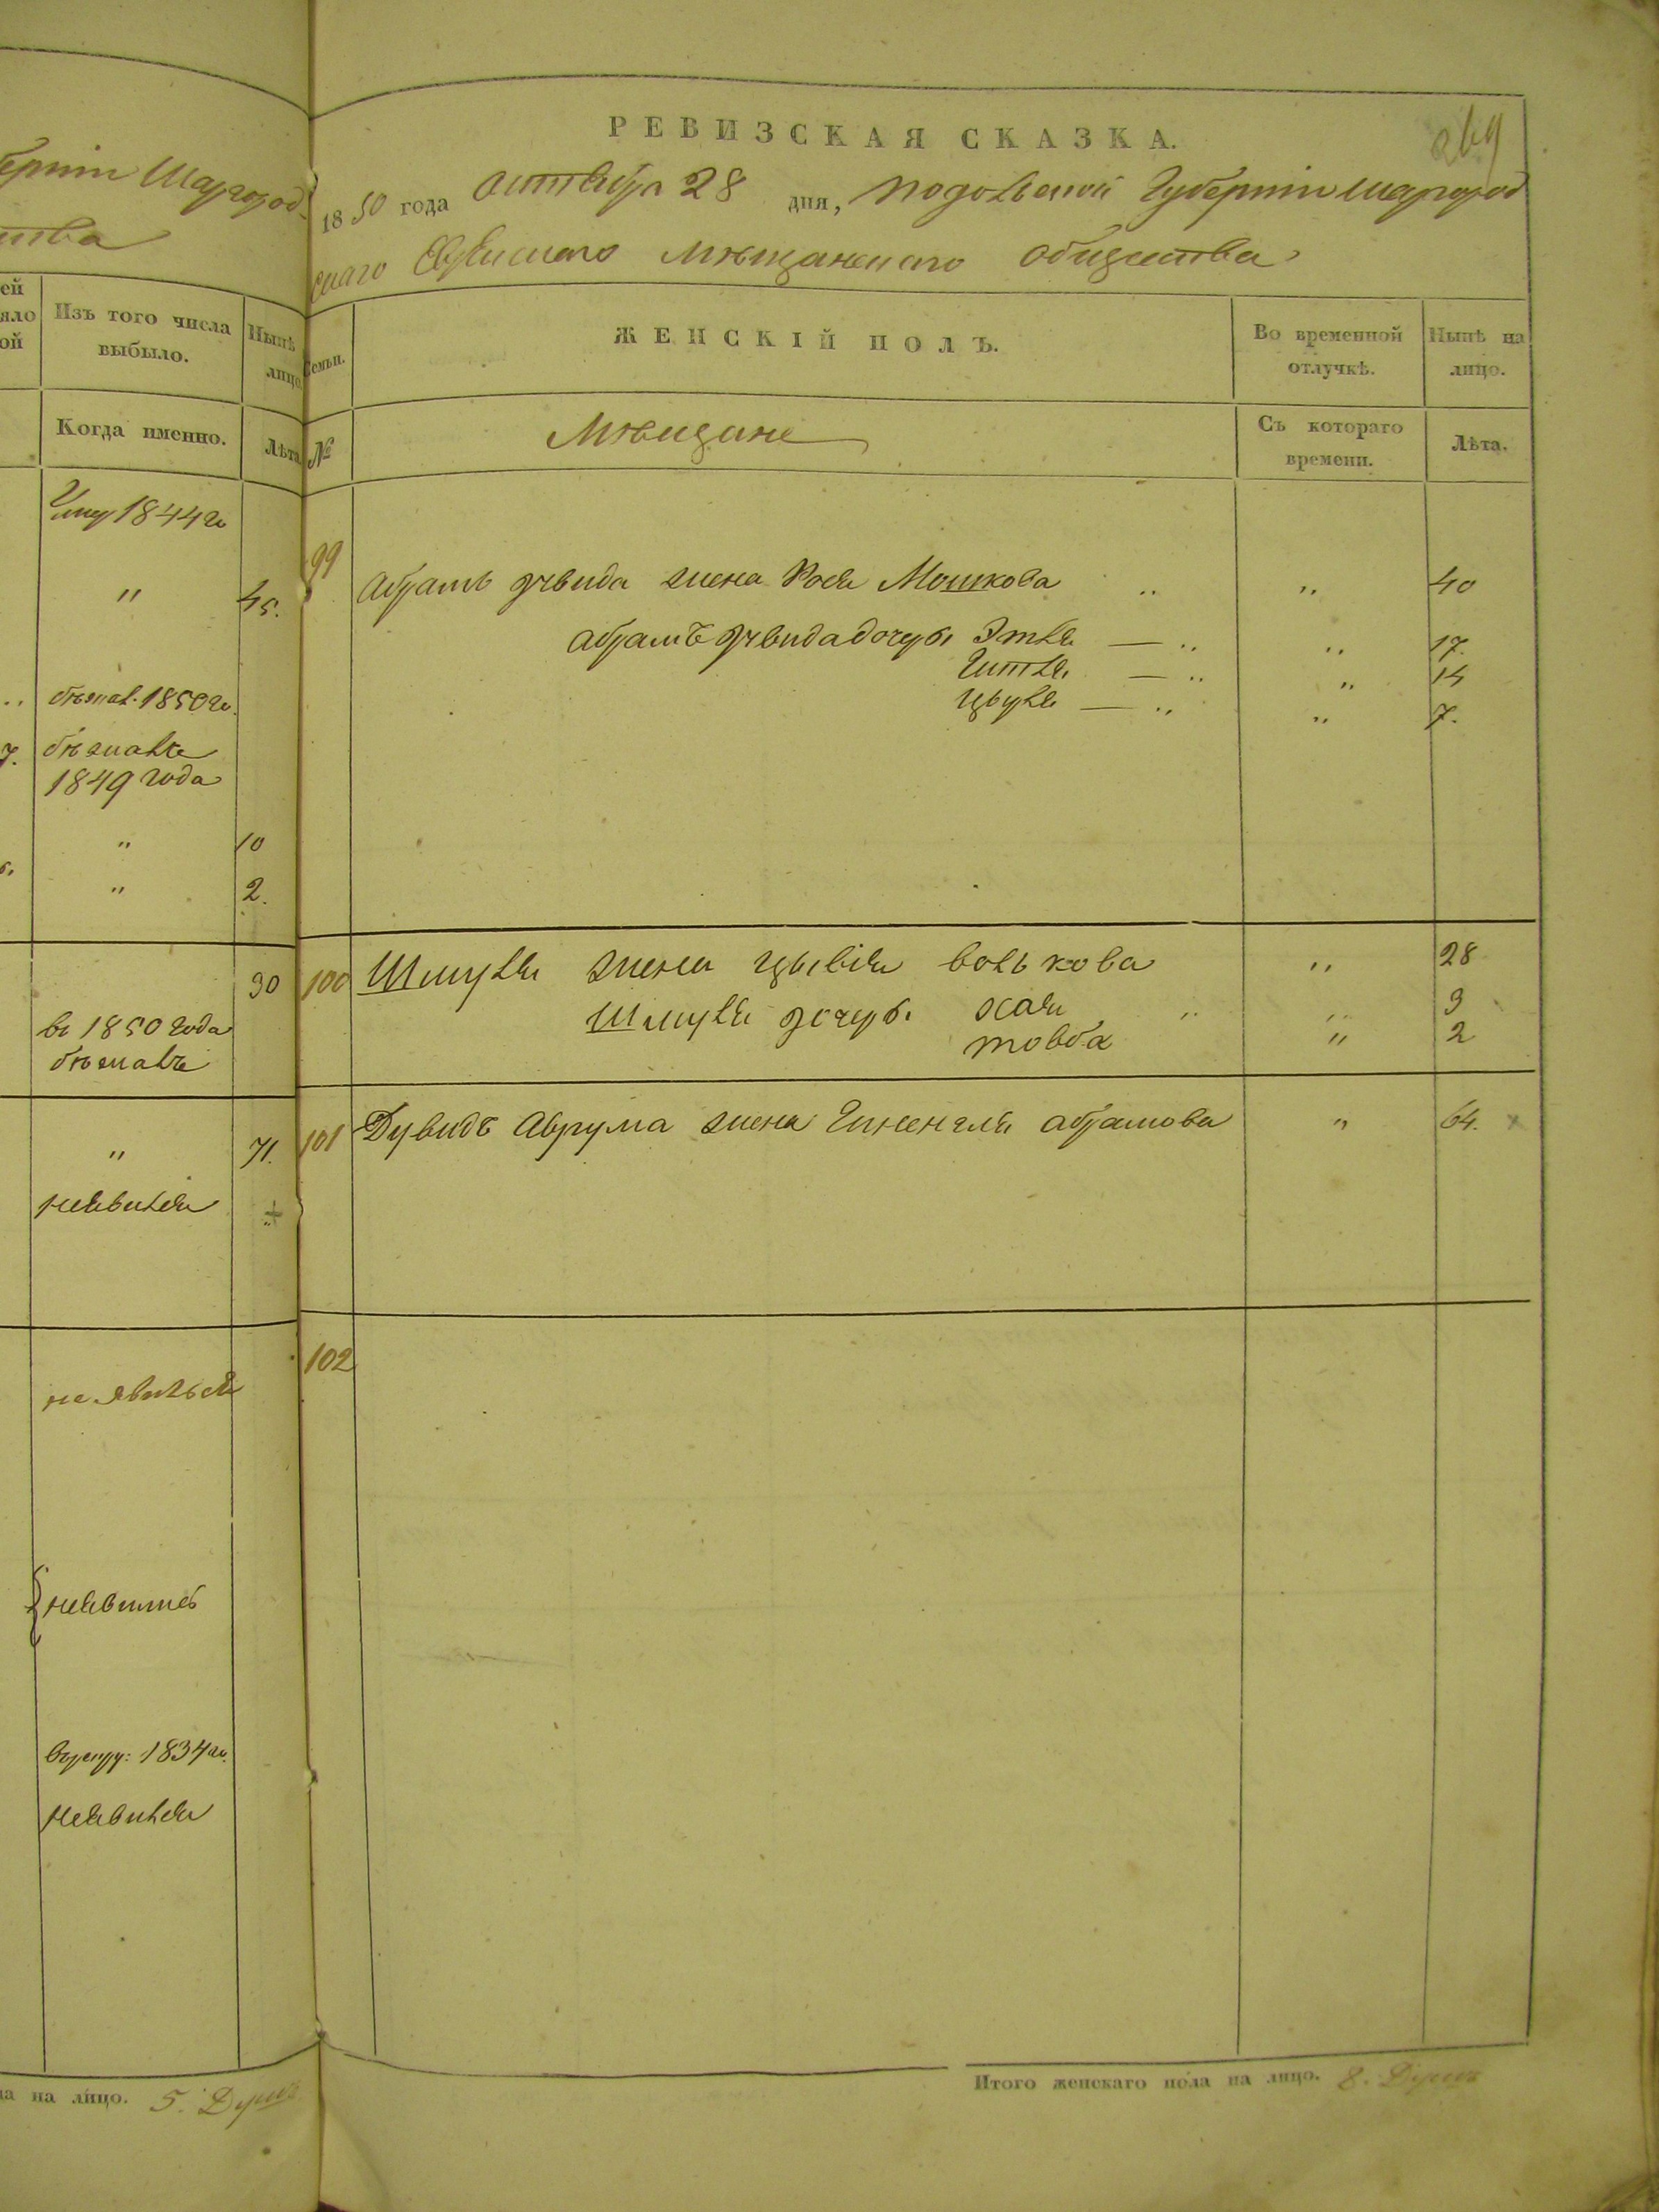 берніи Шаргород-
ства
ей
яло
ой
Изъ того числа выбыло.
Нынѣ лицо
Когда именно.
Лѣта
Умер 1844 го
" 45.
бѣжал. 1850 го.
7. бѣжалъ
1849 года
" 10
" 2.
30
въ 1850 года
бѣжалъ
" 71.
неявился
не явилься
неявились
неявился
на лицо. 5. Душъ
РЕВИЗСКАЯ СКАЗКА.
269
1850 года октября 28 дня, Подольской Губерніи Шаргород
скаго Еврейскаго мѣщанскаго общества
Семьи.
ЖЕНСКІЙ ПОЛЪ.
Во временной отлучкѣ.
Нынѣ на лицо.
№
Мѣщане
Съ котораго времени.
Лѣта.
99 Абрамъ Дувида жена Рося Мошкова " " 40
Абрамъ Дувида дочери Этля — " " 17.
Гитля — " " 14
Цвуля — " " 7.
100 Шмуля жена Цывія Волькова " 28
Шмуля дочери Хая " " 3
товба " 2
101 Дувидъ Аврума жена Енженгля Абрамова " 64. ×
102
Итого женскаго пола на лицо. 8. Душъ